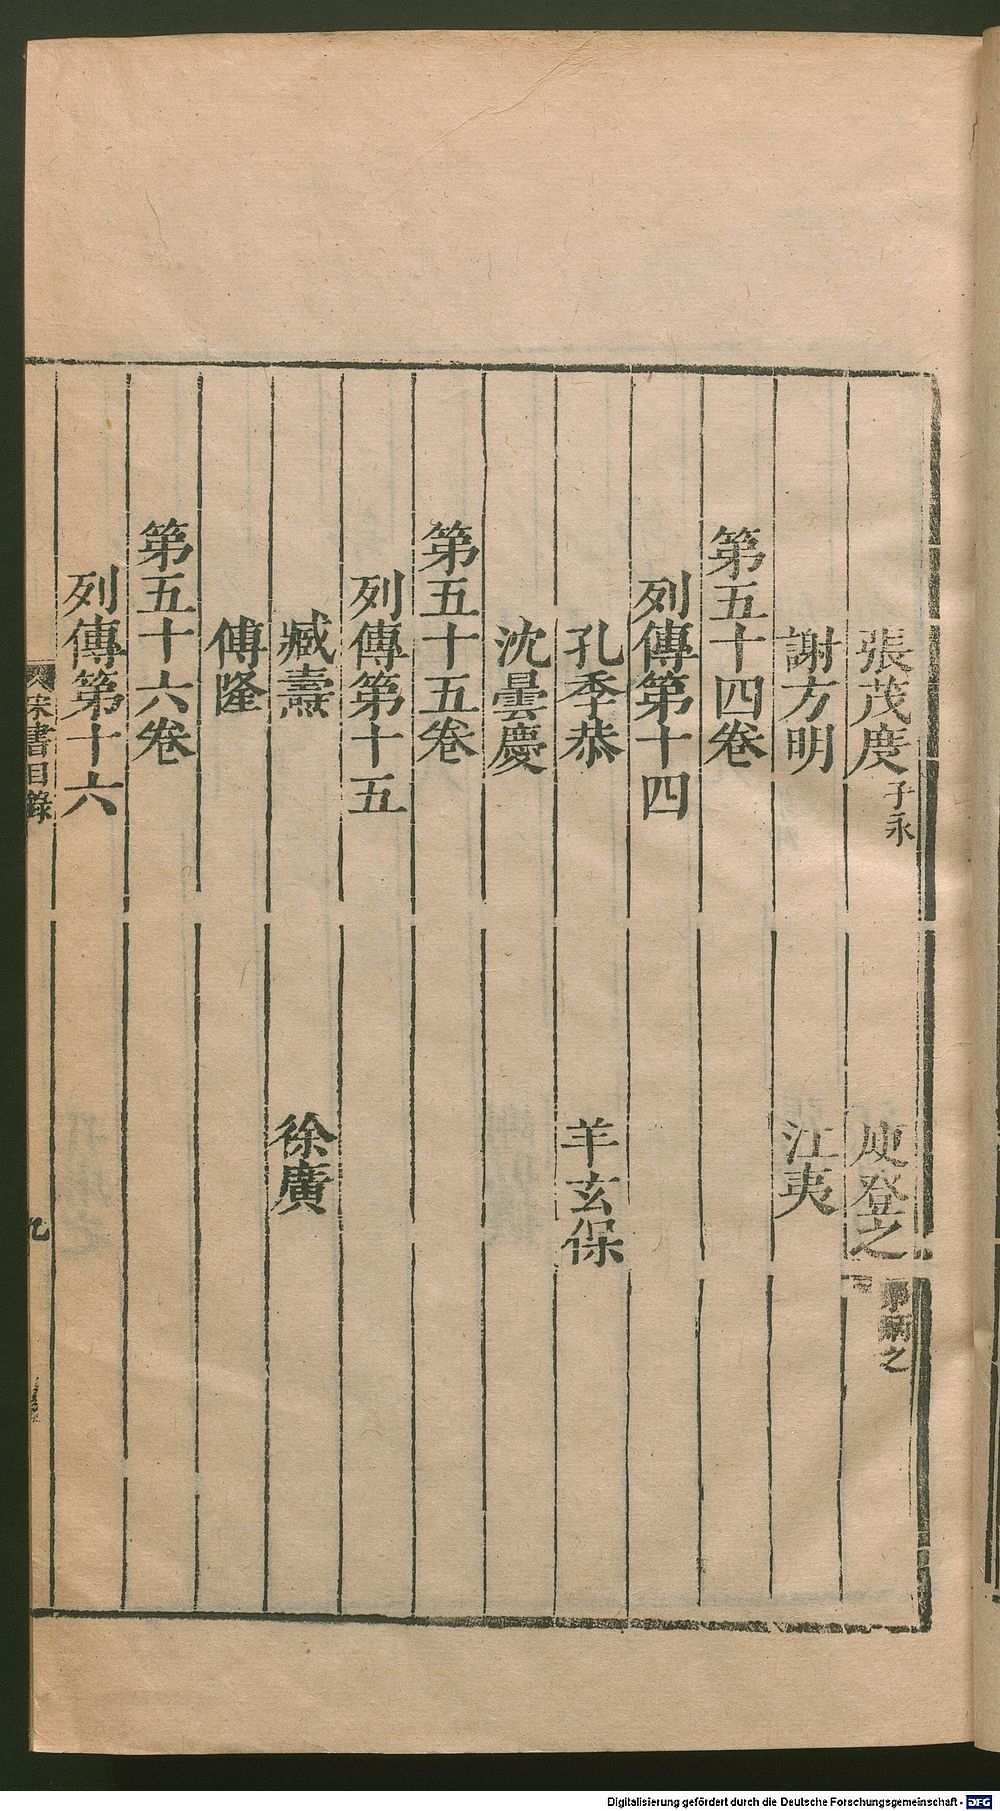 張茂度子永 庾登之弟炳之
謝方明 江夷
第五十四卷
列傳第十四
孔季恭 羊玄保
沈曇慶
第五十五卷
列傳第十五
臧燾 徐廣
傅隆
第五十六卷
列傳第十六
宋書目錄 九
Digitalisierung gefördert durch die Deutsche Forschungsgemeinschaft - DFG